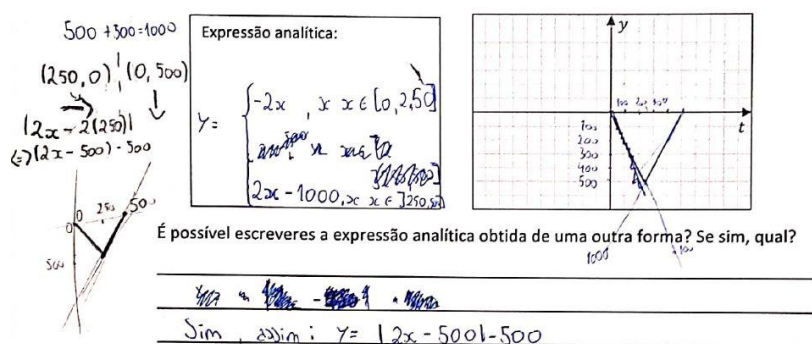 500 + 500 = 1000
(250, 0) | (0, 500)
|2x - 2(250)|
(=) (2x - 500) - 500
0 0 250 500
500
Expressão analítica:
y = { -2x , se x ∈ [0, 250]
2x - 1000, se x ∈ ]250, 500]
y
100 200 300
t
100
200
300
400
500
1000
É possível escreveres a expressão analítica obtida de uma outra forma? Se sim, qual?
Sim, assim: y = |2x - 500| - 500